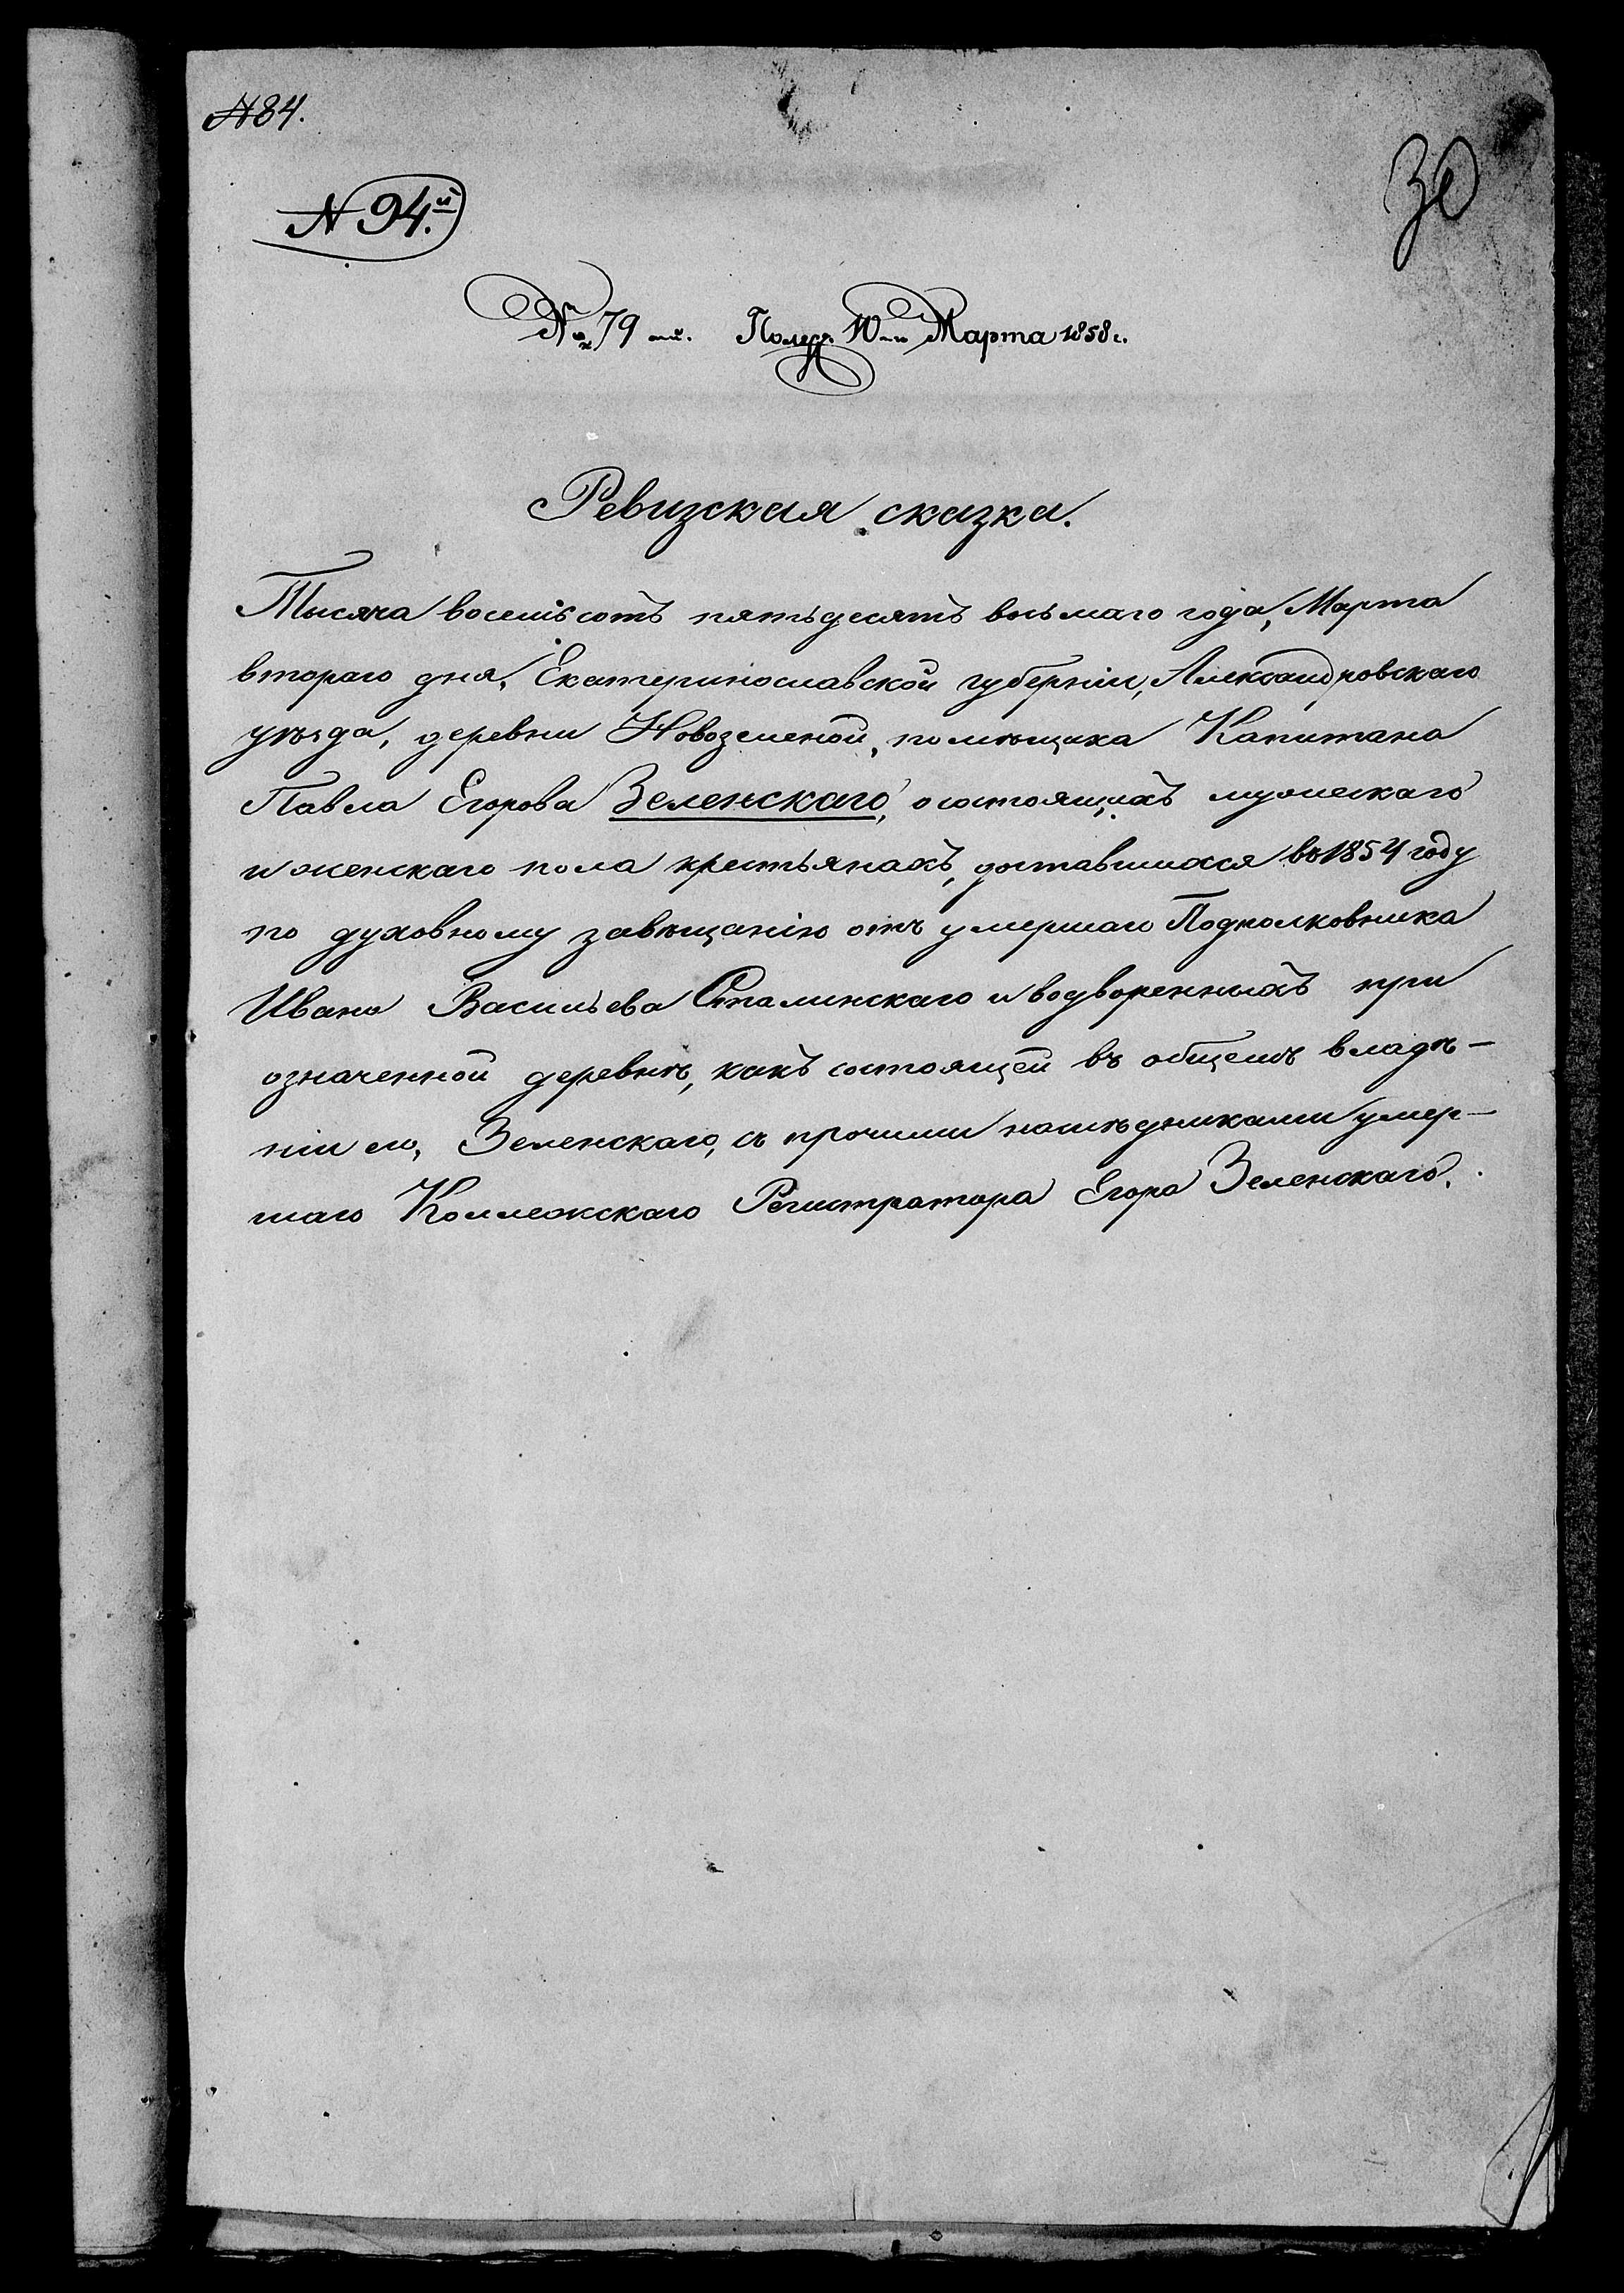 № 84.
30
№ 94.й
№ 79 ый. Получ. 10го Марта 1858 г.
Ревизская сказка.
Тысяча восемьсотъ пятьдесятъ восьмаго года, Марта
втораго дня, Екатеринославской губерніи, Александровскаго
уѣзда, деревни Новозеленой, помѣщика Капитана
Павла Егорова Зеленскаго, о состоящихъ мужескаго
и женскаго пола крестьянахъ, доставшихся въ 1854 году
по духовному завѣщанію отъ умершаго Подполковника
Ивана Васильева Сталинскаго и водворенныхъ при
означенной деревнѣ, какъ состоящей въ общемъ владѣ-
ніи его, Зеленскаго, съ прочими наслѣдниками умер-
шаго Коллежскаго Регистратора Егора Зеленскаго.